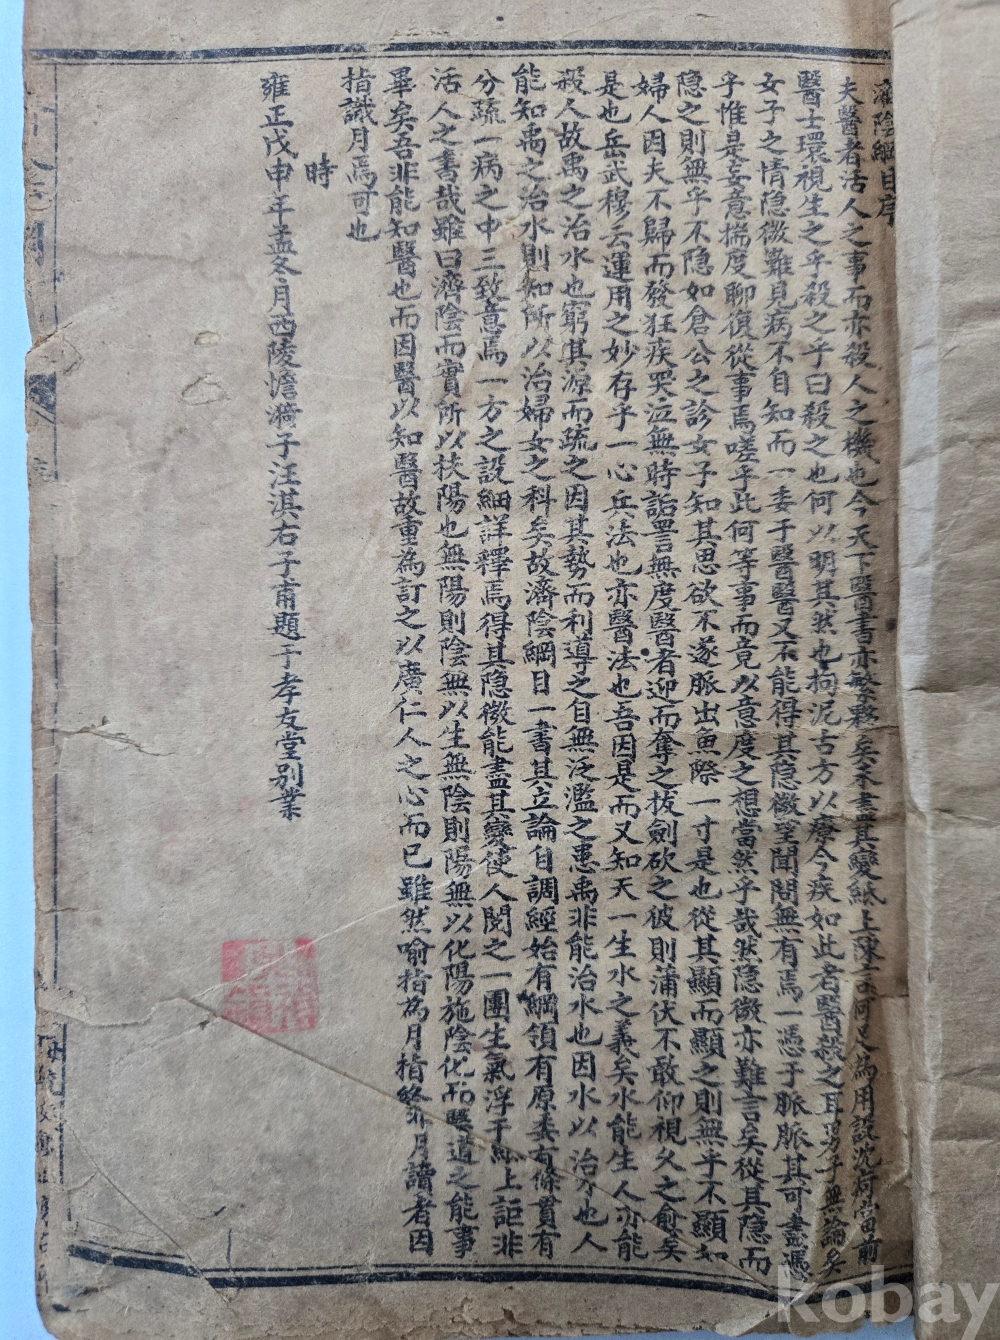 濟陰綱目序
夫醫者活人之事而亦殺人之機也今天下醫書亦繁夥矣不盡其變紙上陳言何足為用設沈疴當前
醫士環視生之乎殺之乎曰殺之也何以明其然也拘泥古方以療今疾如此者醫殺之耳男子無論矣
女子之情隐微難見病不自知而一委于醫醫又不能得其隐微望聞問無有焉一憑于脈脈其可盡憑
乎惟是妄意揣度聊復從事焉嗟乎此何等事而竟以意度之想當然乎哉然隐微亦難言矣從其隐而
隐之則無乎不隐如倉公之診女子知其思欲不遂脈出魚際一寸是也從其顯而顯之則無乎不顯如
婦人因夫不歸而發狂疾哭泣無時詬詈無度醫者迎而奪之拔劍砍之彼則蒲伏不敢仰視久之愈矣
是也岳武穆云運用之妙存乎一心兵法也亦醫法也吾因是而又知天一生水之義矣水能生人亦能
殺人故禹之治水也窮其源而疏之因其勢而利導之自無泛濫之患禹非能治水也因水以治水也人
能知禹之治水則知所以治婦女之科矣故濟陰綱目一書其立論自調經始有綱領有原委有條貫有
分疏一病之中三致意焉一方之設細詳釋焉得其隐微能盡其變使人閱之一團生氣浮于紙上詎非
活人之書哉雖曰濟陰而實所以扶陽也無陽則陰無以生無陰則陽無以化陽施陰化而醫道之能事
畢矣吾非能知醫也而因醫以知醫故重為訂之以廣仁人之心而已雖然喻指為月指終非月讀者因
指識月焉可也
時
雍正戊申年孟冬月西陵憺漪子汪淇右子甫題于孝友堂别業
kobay